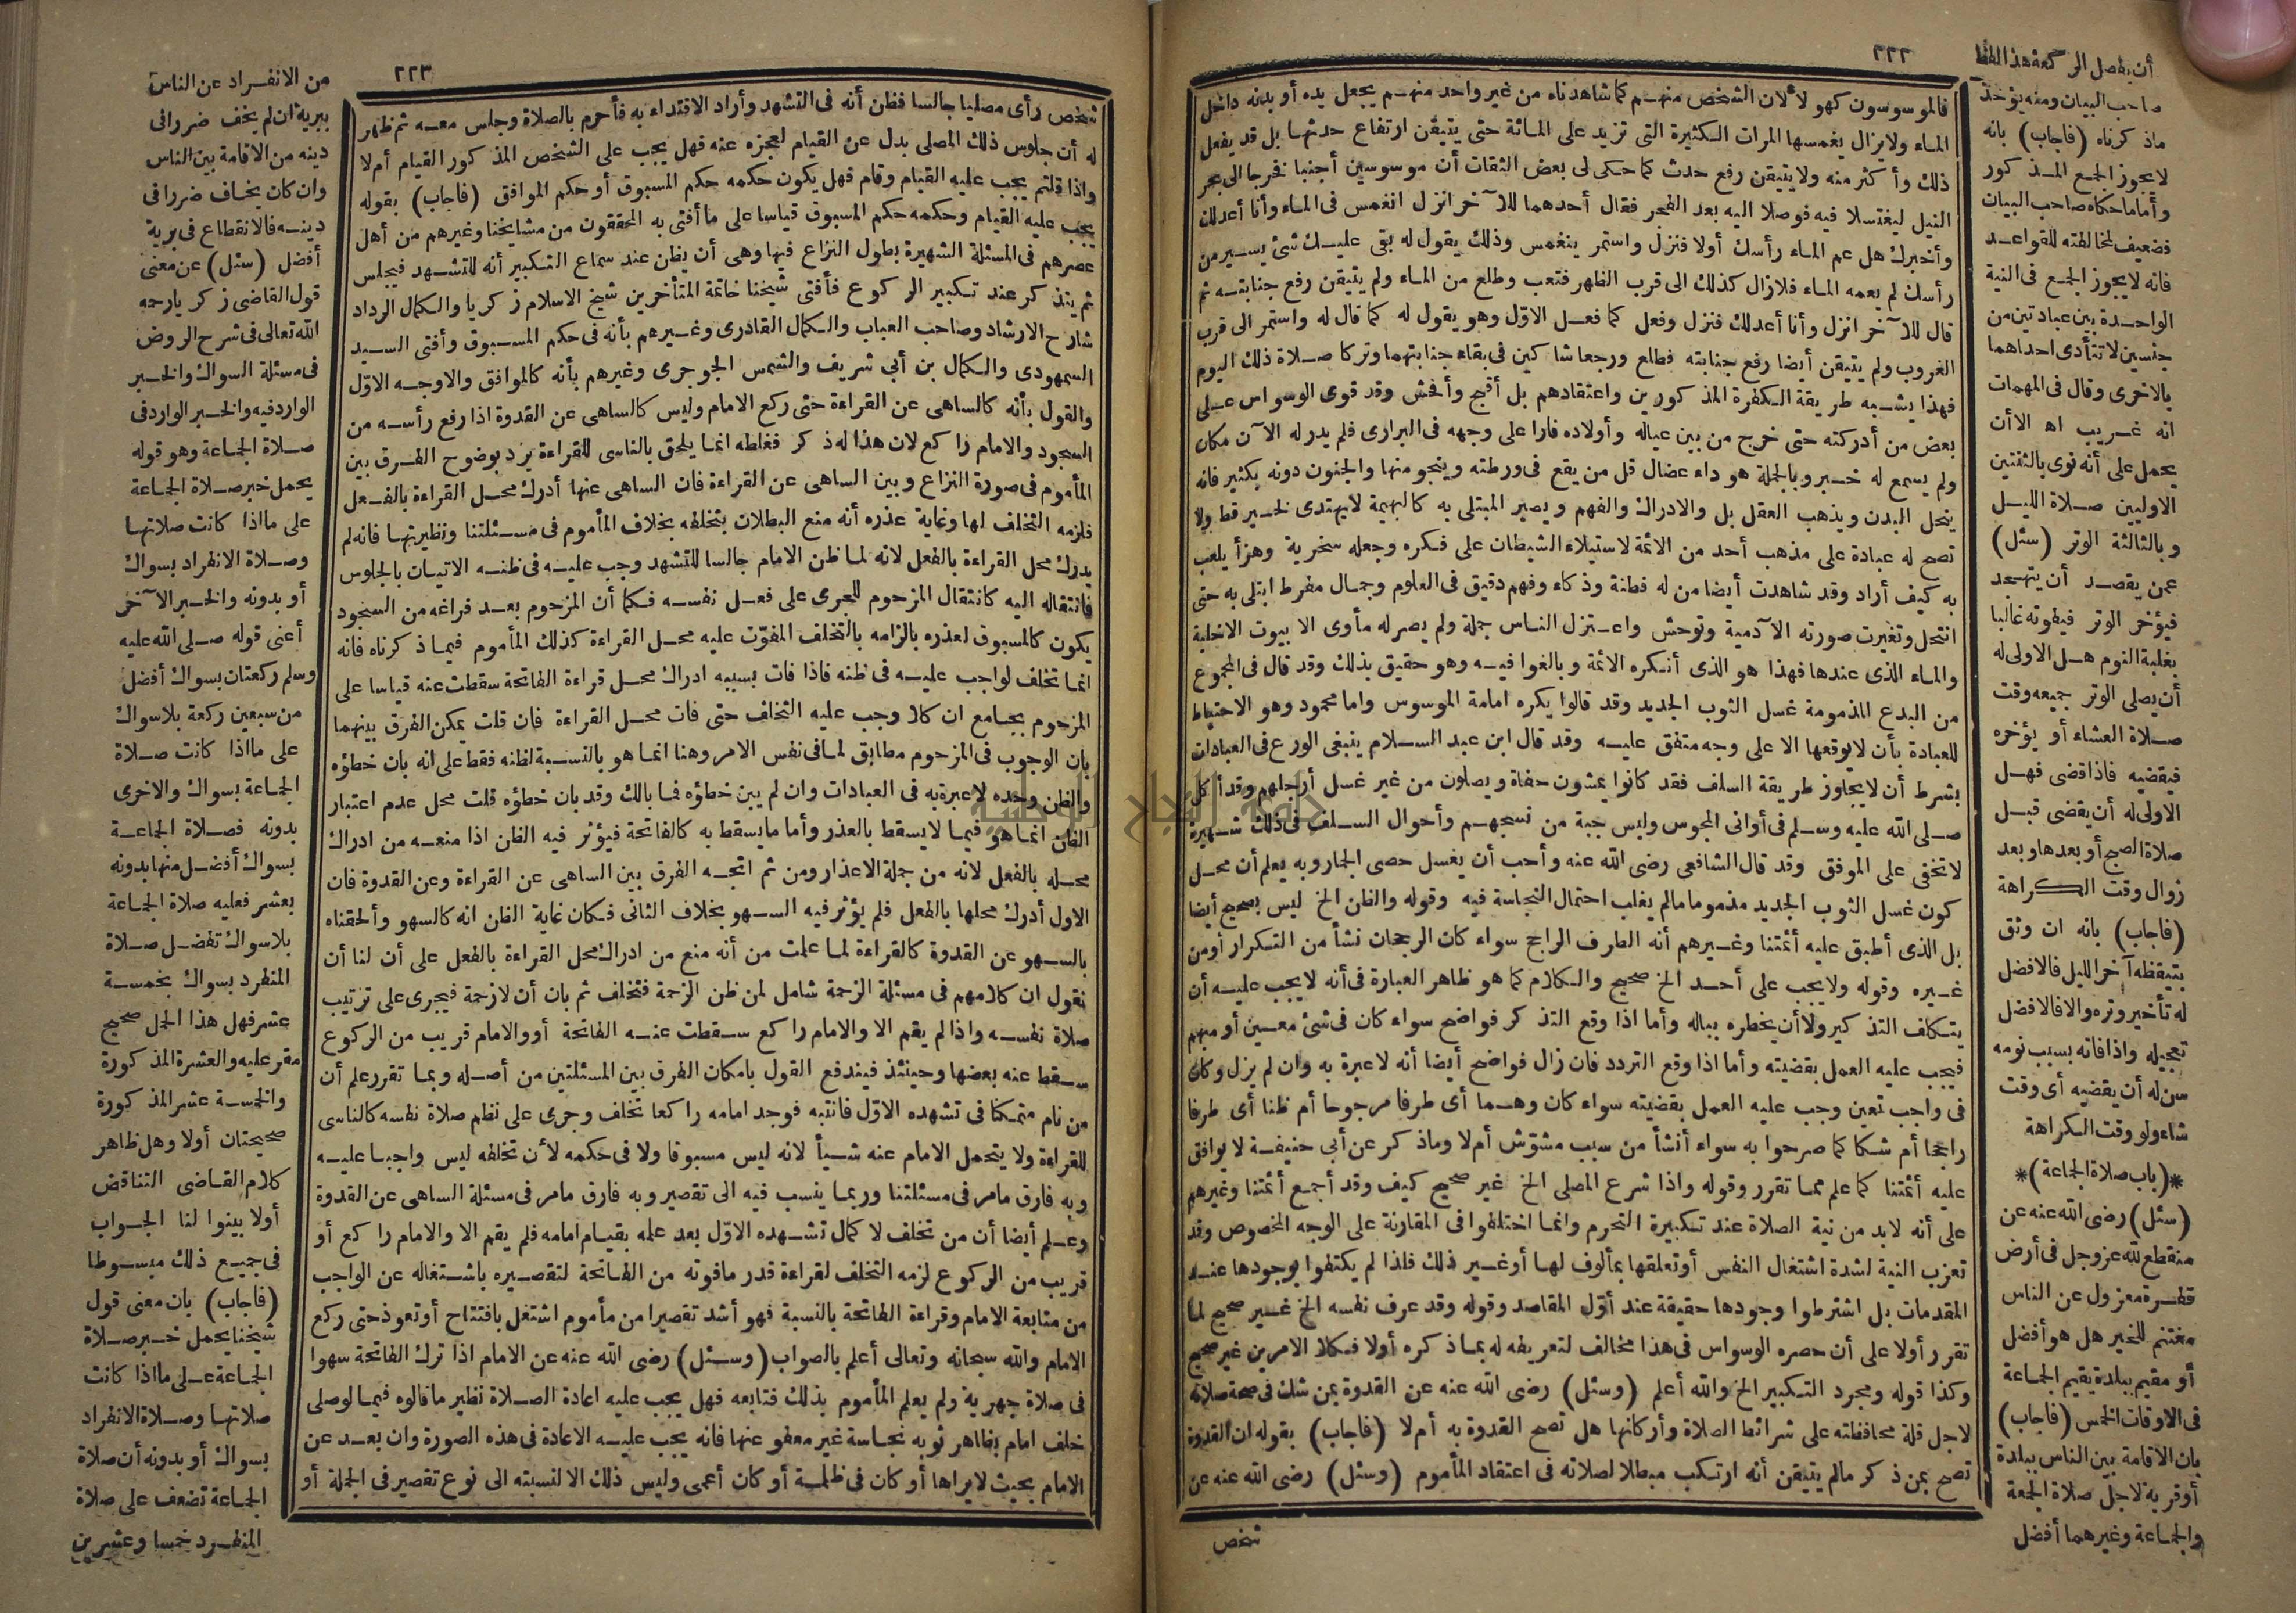 ٢٢٢
فالموسوسون كهو لا لأن الشخص منهم كما شاهدناه من غير واحد منهم يجعل يده أو بدنه داخل
الماء ولا يزال يغمسها المرات الكثيرة التى تزيد على المائة حتى يتيقن ارتفاع حدثها بل قد يفعل
ذلك وأكثر منه ولا يتيقن رفع حدث كما حكى لى بعض الثقات أن موسوسين أجنبا فخرجا الى بحر
النيل ليغتسلا فيه فوصلا اليه بعد الفجر فقال أحدهما للآخر انزل انغمس فى الماء وأنا أعدلك
وأخبرك هل عم الماء رأسك أولا فنزل واستمر ينغمس وذلك يقول له بقى عليك شئ يسير من
رأسك لم يعمه الماء فلازال كذلك الى قرب الظهر فتعب وطلع من الماء ولم يتيقن رفع جنابته ثم
قال للآخر انزل وأنا أعدلك فنزل وفعل كما فعل الاوّل وهو يقول له كما قال له واستمر الى قرب
الغروب ولم يتيقن أيضا رفع جنابته فطلع ورجعا شاكين فى بقاء جنابتهما وتركا صلاة ذلك اليوم
فهذا يشبه طريقة الكفرة المذكورين واعتقادهم بل أقبح وأفحش وقد قوى الوسواس على
بعض من أدركته حتى خرج من بين عياله وأولاده فارا على وجهه فى البرارى فلم يدر له الآن مكان
ولم يسمع له خبر وبالجملة هو داء عضال قل من يقع فى ورطته وينجو منها والجنون دونه بكثير فانه
ينحل البدن ويذهب العقل بل والادراك والفهم ويصير المبتلى به كالبهيمة لا يهتدى لخير قط ولا
تصح له عبادة على مذهب أحد من الائمة لاستيلاء الشيطان على فكره وجعله سخرية وهزأ يلعب
به كيف أراد وقد شاهدت أيضا من له فطنة وذكاء وفهم دقيق فى العلوم وجمال مفرط ابتلى به حتى
انتحل وتغيرت صورته الآدمية وتوحش واعتزل الناس جملة ولم يصر له مأوى الا بيوت الاخلية
والماء الذى عندها فهذا هو الذى أنكره الائمة وبالغوا فيه وهو حقيق بذلك وقد قال فى المجموع
من البدع المذمومة غسل الثوب الجديد وقد قالوا يكره امامة الموسوس واما محمود وهو الاحتياط
للعبادة بأن لا يوقعها الا على وجه متفق عليه وقد قال ابن عبد السلام ينبغى الورع فى العبادات
بشرط أن لا يجاوز طريقة السلف فقد كانوا يمشون حفاة ويصلون من غير غسل أرجلهم وقد أكل
صلى الله عليه وسلم فى أوانى المجوس ولبس جبة من نسجهم وأحوال السلف فى ذلك شهيرة
لا تخفى على الموفق وقد قال الشافعى رضى الله عنه وأحب أن يغسل حصى الجمار وبه يعلم أن محل
كون غسل الثوب الجديد مذموما ما لم يغلب احتمال النجاسة فيه وقوله والظن الخ ليس بصحيح أيضا
بل الذى أطبق عليه أئمتنا وغيرهم أنه الطرف الراجح سواء كان الرجحان نشأ من التكرار أو من
غيره وقوله ولا يجب على أحد الخ صحيح والكلام كما هو ظاهر العبارة فى أنه لا يجب عليه أن
يتكلف التذكير ولا أن يخطره بباله وأما اذا وقع التذكر فواضح سواء كان فى شئ معين أو مبهم
فيجب عليه العمل بقضيته وأما اذا وقع التردد فان زال فواضح أيضا أنه لا عبرة به وان لم يزل وكان
فى واجب تعين وجب عليه العمل بقضيته سواء كان وهما أى طرفا مرجوحا أم ظنا أى طرفا
راجحا أم شكا كما صرحوا به سواء أنشأ من سبب مشوّش أم لا وما ذكر عن أبى حنيفة لا يوافق
عليه أئمتنا كما علم مما تقرر وقوله واذا شرع المصلى الخ غير صحيح كيف وقد أجمع أئمتنا وغيرهم
على أنه لابد من نية الصلاة عند تكبيرة التحرم وانما اختلفوا فى المقارنة على الوجه المخصوص وقد
تعزب النية لشدة اشتغال النفس أو تعلقها بمألوف لها أو غير ذلك فلذا لم يكتفوا بوجودها عند
المقدمات بل اشترطوا وجودها حقيقة عند أوّل المقاصد وقوله وقد عرف نفسه الخ غير صحيح لما
تقرر أولا على أن حصره الوسواس فى هذا مخالف لتعريفه له بما ذكره أولا فكلا الامرين غير صحيح
وكذا قوله ومجرد التكبير الخ والله أعلم (وسئل) رضى الله عنه عن القدوة بمن شك فى صحة صلاته
لاجل قلة محافظته على شرائط الصلاة وأركانها هل تصح القدوة به أم لا (فاجاب) بقوله ان القدوة
تصح بمن ذكر ما لم يتيقن أنه ارتكب مبطلا لصلاته فى اعتقاد المأموم (وسئل) رضى الله عنه عن
شخص
أن يفصل الركعة هذا لفظ
صاحب البيان ومنه يؤخذ
ما ذكرناه (فاجاب) بانه
لا يجوز الجمع المذكور
وأما ما حكاه صاحب البيان
فضعيف لمخالفته للقواعد
فانه لا يجوز الجمع فى النية
الواحدة بين عبادتين من
جنسين لا تتأدى احداهما
بالاخرى وقال فى المهمات
انه غريب اه الا أن
يحمل على أنه نوى بالثنتين
الاوليين صلاة الليل
وبالثالثة الوتر (سئل)
عمن يقصد أن يتهجد
فيؤخر الوتر فيفوته غالبا
بغلبة النوم هل الاولى له
أن يصلى الوتر جميعه وقت
صلاة العشاء أو يؤخره
فيقضيه فاذا قضى فهل
الاولى له أن يقضى قبل
صلاة الصبح أو بعدها وبعد
زوال وقت الكراهة
(فاجاب) بانه ان وثق
بتيقظه آخر الليل فالافضل
له تأخير وتره والا فالافضل
تعجيله واذا فاته بسبب نومه
سن له أن يقضيه أى وقت
شاء ولو وقت الكراهة
*(باب صلاة الجماعة)*
(سئل) رضى الله عنه عن
منقطع لله عز وجل فى أرض
قفرة معزول عن الناس
مغتنم للخير هل هو أفضل
أو مقيم ببلدة يقيم الجماعة
فى الاوقات الخمس (فاجاب)
بان الاقامة بين الناس ببلدة
أو قرية لاجل صلاة الجمعة
والجماعة وغيرهما أفضل
٢٢٣
شخص رأى مصليا جالسا فظن أنه فى التشهد وأراد الاقتداء به فأحرم بالصلاة وجلس معه ثم ظهر
له أن جلوس ذلك المصلى بدل عن القيام لعجزه عنه فهل يجب على الشخص المذكور القيام أم لا
واذا قلتم يجب عليه القيام وقام فهل يكون حكمه حكم المسبوق أو حكم الموافق (فاجاب) بقوله
يجب عليه القيام وحكمه حكم المسبوق قياسا على ما أفتى به المحققون من مشايخنا وغيرهم من أهل
عصرهم فى المسئلة الشهيرة بطول النزاع فيها وهى أن يظن عند سماع التكبير أنه للتشهد فيجلس
ثم يتذكر عند تكبير الركوع فأفتى شيخنا خاتمة المتأخرين شيخ الاسلام زكريا والكمال الرداد
شارح الارشاد وصاحب العباب والكمال القادرى وغيرهم بأنه فى حكم المسبوق وأفتى السيد
السمهودى والكمال بن أبى شريف والشمس الجوجرى وغيرهم بأنه كالموافق والاوجه الاوّل
والقول بأنه كالساهى عن القراءة حتى ركع الامام وليس كالساهى عن القدوة اذا رفع رأسه من
السجود والامام راكع لان هذا له ذكر فغلطه انما يلحق بالناسى للقراءة يرد بوضوح الفرق بين
المأموم فى صورة النزاع وبين الساهى عن القراءة فان الساهى عنها أدرك محل القراءة بالفعل
فلزمه التخلف لها وغاية عذره أنه منع البطلان بتخلفه بخلاف المأموم فى مسئلتنا ونظيرتها فانه لم
يدرك محل القراءة بالفعل لانه لما ظن الامام جالسا للتشهد وجب عليه فى ظنه الاتيان بالجلوس
فانتقاله اليه كانتقال المزحوم للجرى على فعل نفسه فكما أن المزحوم بعد فراغه من السجود
يكون كالمسبوق لعذره بالزامه بالتخلف المفوّت عليه محل القراءة كذلك المأموم فيما ذكرناه فانه
انما تخلف لواجب عليه فى ظنه فاذا فات بسببه ادراك محل قراءة الفاتحة سقطت عنه قياسا على
المزحوم بجامع ان كلا وجب عليه التخلف حتى فات محل القراءة فان قلت يمكن الفرق بينهما
بان الوجوب فى المزحوم مطابق لما فى نفس الامر وهنا انما هو بالنسبة لظنه فقط على انه بان خطؤه
والظن وحده لا عبرة به فى العبادات وان لم يبن خطؤه فما بالك وقد بان خطؤه قلت محل عدم اعتبار
الظن انما هو فيما لا يسقط بالعذر وأما ما يسقط به كالفاتحة فيؤثر فيه الظن اذا منعه من ادراك
محله بالفعل لانه من جملة الاعذار ومن ثم اتجه الفرق بين الساهى عن القراءة وعن القدوة فان
الاول أدرك محلها بالفعل فلم يؤثر فيه السهو بخلاف الثانى فكان غاية الظن انه كالسهو وألحقناه
بالسهو عن القدوة كالقراءة لما علمت من أنه منع من ادراك محل القراءة بالفعل على أن لنا أن
نقول ان كلامهم فى مسئلة الزحمة شامل لمن ظن الزحمة فتخلف ثم بان أن لا زحمة فيجرى على ترتيب
صلاة نفسه واذا لم يقم الا والامام راكع سقطت عنه الفاتحة أو والامام قريب من الركوع
سقط عنه بعضها وحينئذ فيندفع القول بامكان الفرق بين المسئلتين من أصله وبما تقرر علم أن
من نام متمكنا فى تشهده الاوّل فانتبه فوجد امامه راكعا تخلف وجرى على نظم صلاة نفسه كالناسى
للقراءة ولا يتحمل الامام عنه شيأ لانه ليس مسبوقا ولا فى حكمه لأن تخلفه ليس واجبا عليه
وبه فارق ما مر فى مسئلتنا وربما ينسب فيه الى تقصير وبه فارق ما مر فى مسئلة الساهى عن القدوة
وعلم أيضا أن من تخلف لاكمال تشهده الاوّل بعد علمه بقيام امامه فلم يقم الا والامام راكع أو
قريب من الركوع لزمه التخلف لقراءة قدر ما فوته من الفاتحة لتقصيره باشتغاله عن الواجب
من متابعة الامام وقراءة الفاتحة بالنسبة فهو أشد تقصيرا من مأموم اشتغل بافتتاح أو تعوذ حتى ركع
الامام والله سبحانه وتعالى أعلم بالصواب (وسئل) رضى الله عنه عن الامام اذا ترك الفاتحة سهوا
فى صلاة جهرية ولم يعلم المأموم بذلك فتابعه فهل يجب عليه اعادة الصلاة نظير ما قالوه فيما لو صلى
خلف امام بظاهر ثوبه نجاسة غير معفو عنها فانه يجب عليه الاعادة فى هذه الصورة وان بعد عن
الامام بحيث لا يراها أو كان فى ظلمة أو كان أعمى وليس ذلك الا لنسبته الى نوع تقصير فى الجملة أو
من الانفراد عن الناس
ببرية ان لم يخف ضررا فى
دينه من الاقامة بين الناس
وان كان يخاف ضررا فى
دينه فالانقطاع فى برية
أفضل (سئل) عن معنى
قول القاضى زكريا رحمه
الله تعالى فى شرح الروض
فى مسئلة السواك والخبر
الوارد فيه والخبر الوارد فى
صلاة الجماعة وهو قوله
يحمل خبر صلاة الجماعة
على ما اذا كانت صلاتها
وصلاة الانفراد بسواك
أو بدونه والخبر الآخر
أعنى قوله صلى الله عليه
وسلم ركعتان بسواك أفضل
من سبعين ركعة بلا سواك
على ما اذا كانت صلاة
الجماعة بسواك والاخرى
بدونه فصلاة الجماعة
بسواك أفضل منها بدونه
بعشر فعليه صلاة الجماعة
بلا سواك تفضل صلاة
المنفرد بسواك بخمسة
عشر فهل هذا الحمل صحيح
مقر عليه والعشرة المذكورة
والخمسة عشر المذكورة
صحيحتان أولا وهل ظاهر
كلام القاضى التناقض
أولا بينوا لنا الجواب
فى جميع ذلك مبسوطا
(فاجاب) بان معنى قول
شيخنا يحمل خبر صلاة
الجماعة على ما اذا كانت
صلاتها وصلاة الانفراد
بسواك أو بدونه أن صلاة
الجماعة تضعف على صلاة
المنفرد خمسا وعشرين